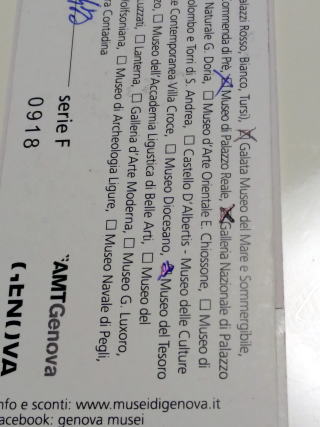 alazzi Rosso, Bianco, Tursi), Galata Museo del Mare e Sommergibile,
ommenda di Prè, Museo di Palazzo Reale, Galleria Nazionale di Palazzo
Naturale G. Doria, □ Museo d'Arte Orientale E. Chiossone, □ Museo di
olombo e Torri di S. Andrea, □ Castello D'Albertis - Museo delle Culture
e Contemporanea Villa Croce, □ Museo Diocesano, Museo del Tesoro
zo, □ Museo dell'Accademia Ligustica di Belle Arti, □ Museo del
uzzati, □ Lanterna, □ Galleria d'Arte Moderna, □ Museo G. Luxoro,
olfsoniana, □ Museo di Archeologia Ligure, □ Museo Navale di Pegli,
ra Contadina
serie F
0918
AMTGenova
GENOVA
nfo e sconti: www.museidigenova.it
acebook: genova musei